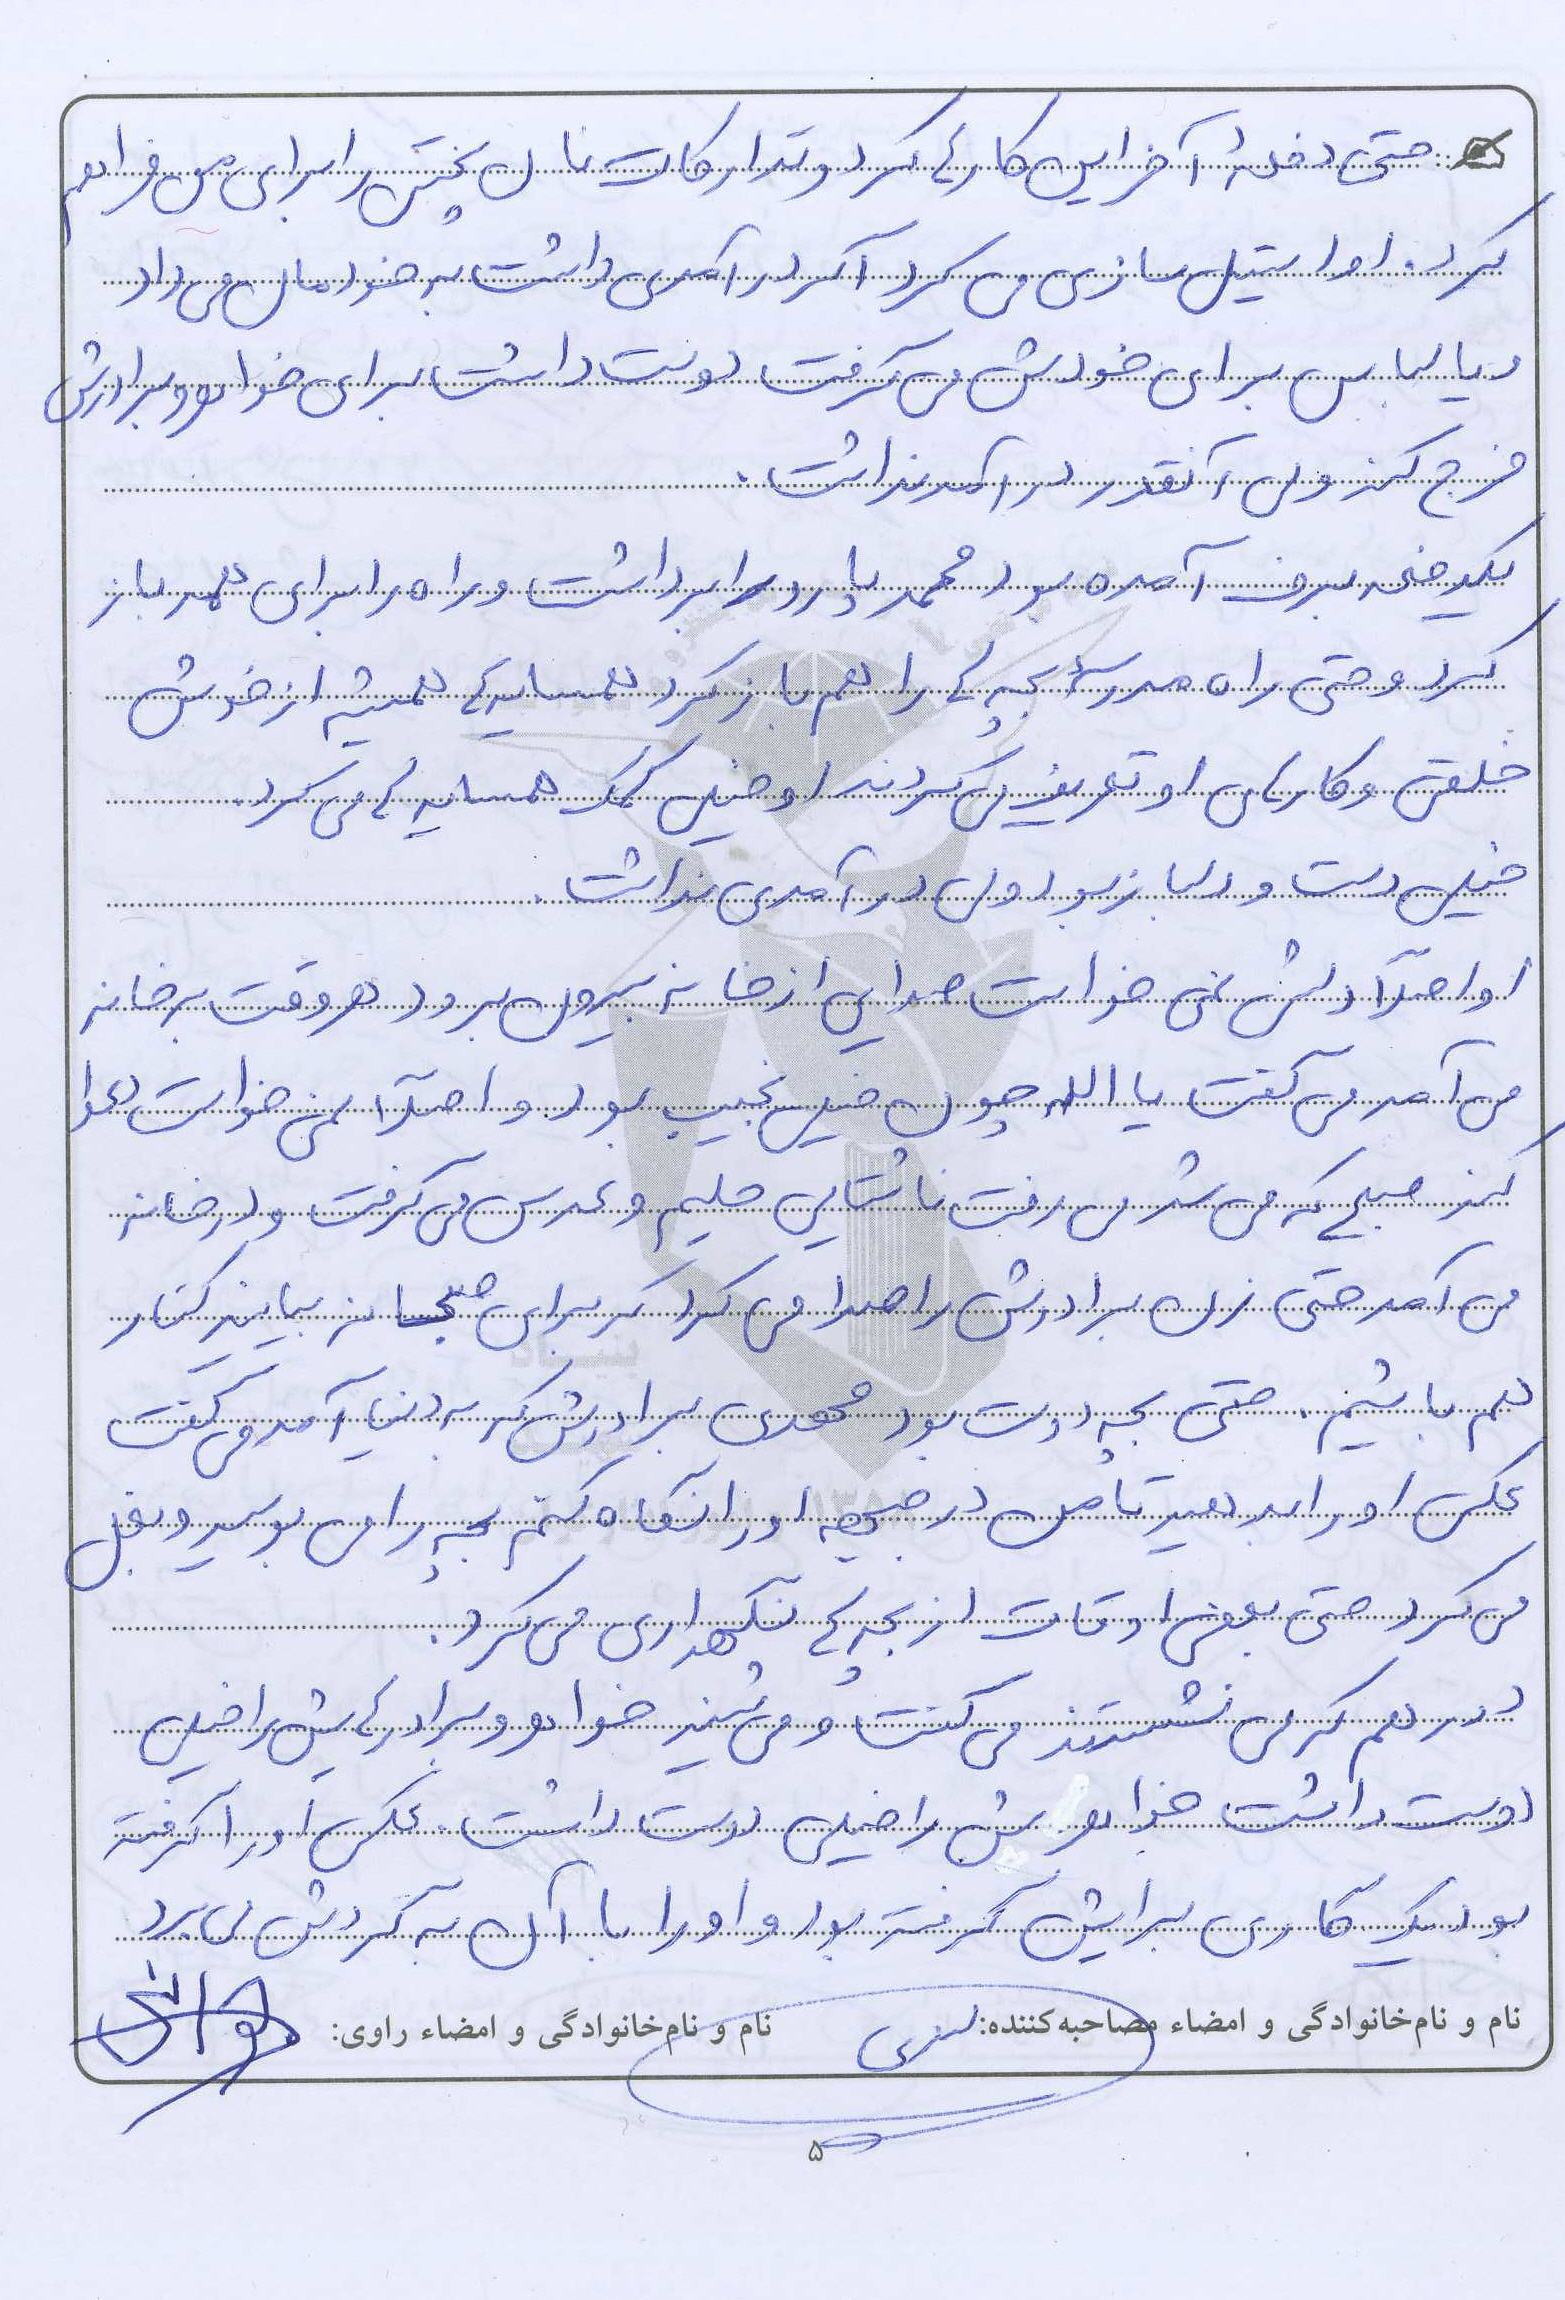 حتی دفعهٔ آخر این کار را کرد و تدارکات نان پختن را برای من فراهم
کرد. او استیل سازی می کرد اگر درآمدی داشت به خودمان می داد
و یا لباس برای خودش می گرفت دوست داشت برای خواهر و برادرش
خرج کند ولی آنقدر درآمد نداشت.
یکدفعه برف آمده بود محمد پارو را برداشت و راه را برای همه باز
کرد و حتی راه مدرسهٔ بچه ها را هم باز کرد همسایه ها همیشه از خوش
خلقی و کارهای او تعریف می کردند او خیلی کمک همسایه ها می کرد.
خیلی دست و دلباز بود ولی درآمدی نداشت.
او اصلاً دلش نمی خواست صدایی از خانه بیرون برود هر وقت به خانه
می آمد می گفت یا الله چون خیلی نجیب بود و اصلاً نمی خواست دعوا
کند صبح که می شد می رفت ناشتایی حلیم و عدس می گرفت و در خانه
می آمد حتی زن برادرش را صدا می کرد که برای صبحانه بیایند کنار
هم باشیم. حتی بچه دوست بود مهدی برادرش که به دنیا آمد می گفت
عکس او را بدهید تا من در جبهه او را نگاه کنم بچه را می بوسید و بغل
می کرد حتی بعضی اوقات از بچه ها نگهداری می کرد.
دور هم که می نشستند می گفت و می شنید خواهر و برادرهایش را خیلی
دوست داشت خواهرش را خیلی دوست داشت. عکس او را گرفته
بود یک گاری برایش گرفته بود و او را با آن به گردش می برد
نام و نام خانوادگی و امضاء مصاحبه کننده:
نام و نام خانوادگی و امضاء راوی:
۵